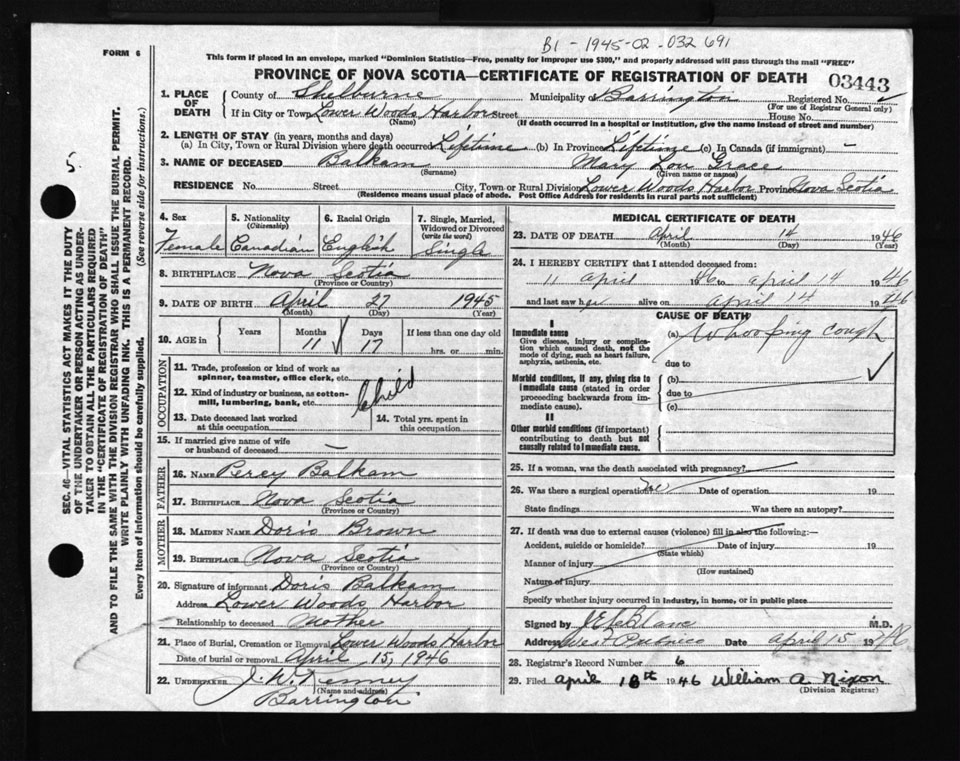 B1 - 1945-02-032691
FORM 6
This form if placed in an envelope, marked "Dominion Statistics—Free, penalty for improper use $300," and properly addressed will pass through the mail "FREE"
PROVINCE OF NOVA SCOTIA—CERTIFICATE OF REGISTRATION OF DEATH
03443
5.
SEC. 40—VITAL STATISTICS ACT MAKES IT THE DUTY
OF THE UNDERTAKER OR PERSON ACTING AS UNDER-
TAKER TO OBTAIN ALL THE PARTICULARS REQUIRED
IN THE "CERTIFICATE OF REGISTRATION OF DEATH"
AND TO FILE THE SAME WITH THE DIVISION REGISTRAR WHO SHALL ISSUE THE BURIAL PERMIT.
WRITE PLAINLY WITH UNFADING INK. THIS IS A PERMANENT RECORD.
Every item of information should be carefully supplied. (See reverse side for instructions.)
1. PLACE OF DEATH
County of Shelburne Municipality of Barrington Registered No.
(For use of Registrar General only)
If in City or Town Lower Woods Harbor Street House No.
(Name) (If death occurred in a hospital or institution, give the name instead of street and number)
2. LENGTH OF STAY (in years, months and days)
(a) In City, Town or Rural Division where death occurred Lifetime (b) In Province Lifetime (c) In Canada (if immigrant) -
3. NAME OF DECEASED Balkam Mary Lou Grace
(Surname) (Given name or names)
RESIDENCE No. Street City, Town or Rural Division Lower Woods Harbor Province Nova Scotia
(Residence means usual place of abode. Post Office Address for residents in rural parts not sufficient)
4. Sex
Female
5. Nationality
(Citizenship)
Canadian
6. Racial Origin
English
7. Single, Married, Widowed or Divorced
(write the word)
Single
8. BIRTHPLACE Nova Scotia
(Province or Country)
9. DATE OF BIRTH April 27 1945
(Month) (Day) (Year)
10. AGE in Years Months 11 Days 17 If less than one day old
hrs. or min.
OCCUPATION
11. Trade, profession or kind of work as
spinner, teamster, office clerk, etc.
12. Kind of industry or business, as cotton-
mill, lumbering, bank, etc.
Child
13. Date deceased last worked
at this occupation
14. Total yrs. spent in
this occupation
15. If married give name of wife
or husband of deceased —
FATHER
16. NAME Percy Balkam
17. BIRTHPLACE Nova Scotia
(Province or Country)
MOTHER
18. MAIDEN NAME Doris Brown
19. BIRTHPLACE Nova Scotia
(Province or Country)
20. Signature of informant Doris Balkam
Address Lower Woods Harbor
Relationship to deceased Mother
21. Place of Burial, Cremation or Removal Lower Woods Harbor
Date of burial or removal April 15, 1946
22. UNDERTAKER J. W. Kenney
(Name and address)
Barrington
MEDICAL CERTIFICATE OF DEATH
23. DATE OF DEATH April 14 1946
(Month) (Day) (Year)
24. I HEREBY CERTIFY that I attended deceased from:
11 april 1946 to april 14 1946
and last saw her alive on april 14 1946
CAUSE OF DEATH
I
Immediate cause
Give disease, injury or complica-
tion which caused death, not the
mode of dying, such as heart failure,
asphyxia, asthenia, etc.
(a) Whooping cough
due to
Morbid conditions, if any, giving rise to
immediate cause (stated in order
proceeding backwards from im-
mediate cause).
(b)
due to
(c)
II
Other morbid conditions (if important)
contributing to death but not
causally related to immediate cause.
25. If a woman, was the death associated with pregnancy?
26. Was there a surgical operation? Date of operation 19
State findings Was there an autopsy?
27. If death was due to external causes (violence) fill in also the following:—
Accident, suicide or homicide? Date of injury 19
(State which)
Manner of injury
(How sustained)
Nature of injury
Specify whether injury occurred in industry, in home, or in public place
Signed by J E LeBlanc M.D.
Address West Pubnico Date april 15 1946
28. Registrar's Record Number 6
29. Filed april 18th 1946 William A. Nixon
(Division Registrar)